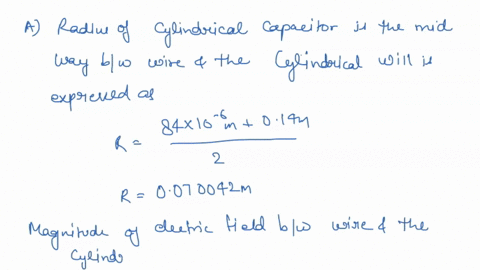 A) Radius of Cylindrical Capacitor is the mid
way b/w wire & the Cylindrical will is
expressed as
R = 84×10⁻⁶m + 0.14m / 2
R = 0.070042m
Magnitude of electric field b/w wire & the
Cylindr